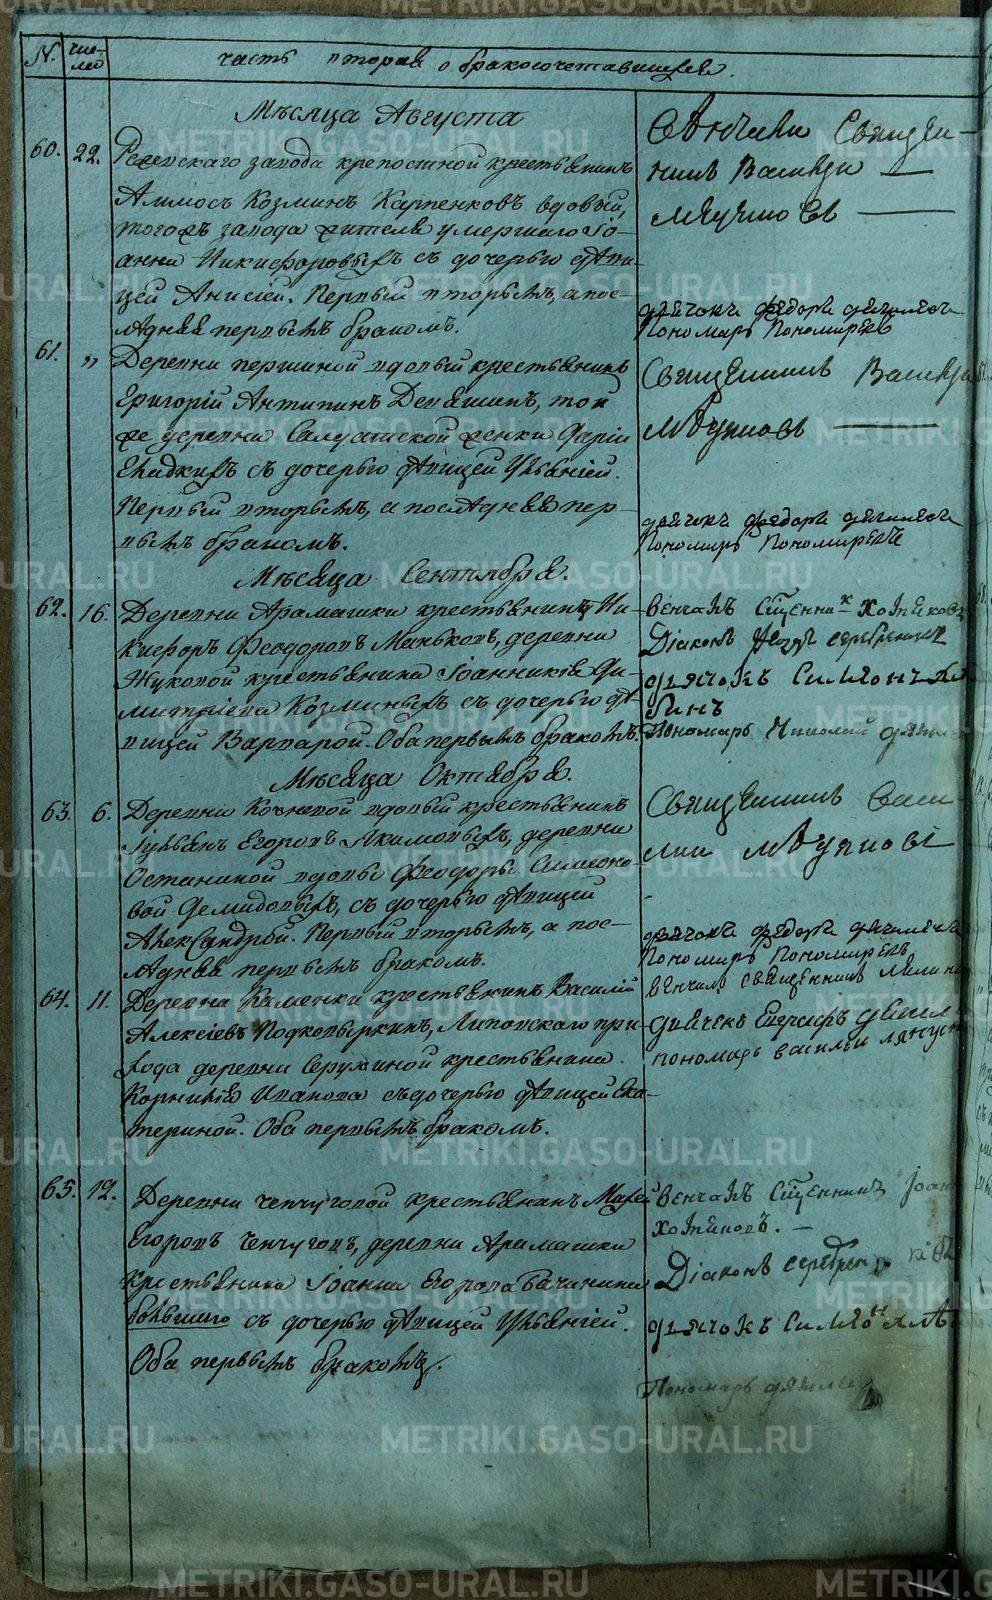 N.
чи-
слó
часть вторая о бракосочетавшихся.
Мѣсяца Августа
60.
22.
Режевскаго завода крепостной крестьянинъ
Козминъ Карпенковъ вдовый,
тогожъ завода жителя умершаго Іо-
анна Никифоровыхъ съ дочерью дѣви-
цей Анисіей. Первый вторымъ, а пос-
лѣдняя первымъ бракомъ.
Вѣнчали Священ-
никъ Василій
Ляпуновъ
дьячокъ Федоръ
Пономарь Пономаревъ
61.
"
Деревни першиной вдовый крестьянинъ
Григорій Антипинъ Девяшинъ, той
же деревни Салдатской женки Даріи
Гладкихъ съ дочерью дѣвицей Ульяніей.
Первый вторымъ, а послѣдняя пер-
вымъ бракомъ.
Священникъ Василій
Ляпуновъ
дьячокъ Федоръ
Пономарь Пономаревъ
Мѣсяца Сентября.
62.
16.
Деревни Арамашки крестьянинъ Ни-
кифоръ Феодоровъ Маньковъ, деревни
Жуковой крестьянина Іоанникія Ди-
митріева Козминыхъ съ дочерью дѣ-
вицей Варварой. Оба первымъ бракомъ.
Венчалъ Сщенникъ Хотѣновъ
Діаконъ
дьячокъ Симіонъ
Пономарь Николай
Мѣсяца Октября.
63.
6.
Деревни Кочневой вдовый крестьянинъ
Іульянъ Егоровъ Якимовыхъ, деревни
Останиной вдовы Феодоры Симеоно-
вой Демидовыхъ, съ дочерью дѣвицей
Александрой. Первый вторымъ, а пос-
лѣдняя первымъ бракомъ.
Священникъ Васи-
лій Ляпуновъ
дьячокъ Федоръ
Пономарь Пономаревъ
64.
11.
Деревни Каменки крестьянинъ Василій
Алексіевъ Подковыркинъ, Липовскаго при-
хода деревни Серухиной крестьянина
Корнилія Иванова съ дочерью дѣвицей Ека-
териной. Оба первымъ бракомъ.
Венчалъ священникъ
дьячекъ
пономарь василій
65.
12.
Деревни Ченчуговой крестьянинъ
Егоровъ Ченчуговъ, деревни Арамашки
крестьянина Іоанна Егорова Бачинина
большаго съ дочерью дѣвицей Ульяніей.
Оба первымъ бракомъ.
Венчалъ Сщенникъ Іоан
Хотѣновъ.
Діаконъ
дьячокъ Симіонъ
Пономарь
METRIKI.GASO-URAL.RU